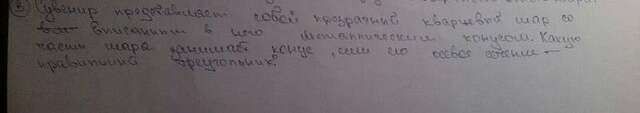 Сувенир представляет собой прозрачный кварцевый шар со
вписанным в него металлическим конусом. Какую
часть шара занимает конус, если его осевое сечение –
правильный треугольник?